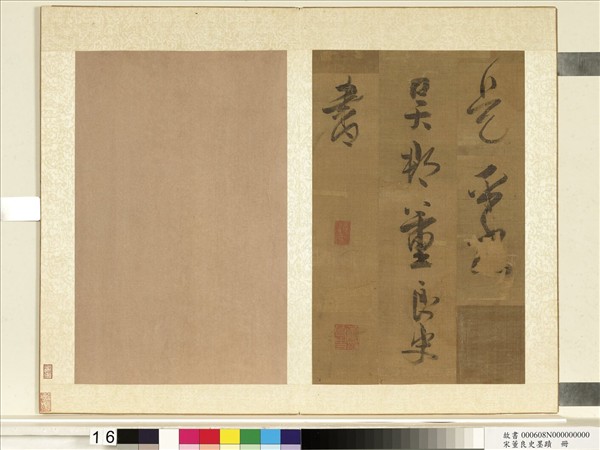 吳郡董良史
書
16
故書 000608N000000000
宋董良史墨蹟 冊